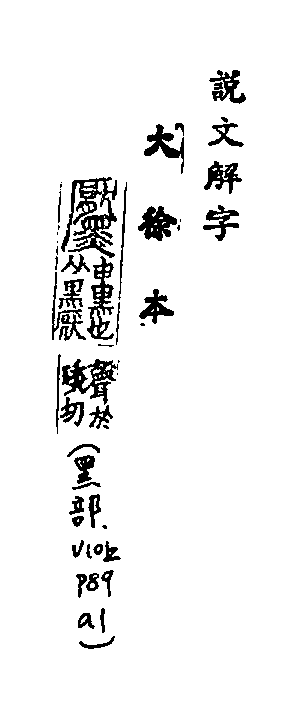 說文解字
大徐本
黶申黑也从黑厭
聲於琰切
(黑部.
V10上
P89
a1)